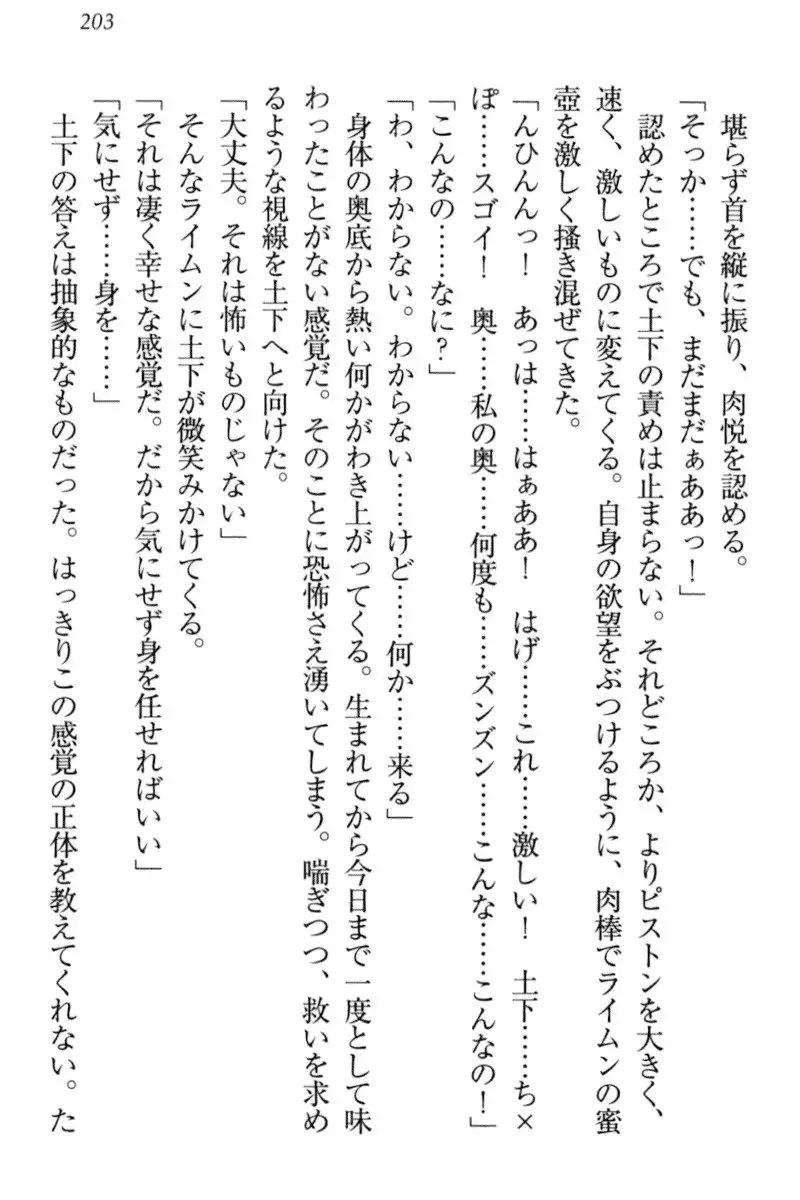 203
堪らず首を縦に振り、肉悦を認める。
「そっか……でも、まだまだぁああっ！」
認めたところで土下の責めは止まらない。それどころか、よりピストンを大きく、
速く、激しいものに変えてくる。自身の欲望をぶつけるように、肉棒でライムンの蜜
壺を激しく掻き混ぜてきた。
「んひんんっ！　あっは……はぁああ！　はげ……これ……激しい！　土下……ち×
ぽ……スゴイ！　奥……私の奥……何度も……ズンズン……こんな……こんなの！」
「こんなの……なに？」
「わ、わからない。わからない……けど……何か……来る」
身体の奥底から熱い何かがわき上がってくる。生まれてから今日まで一度として味
わったことがない感覚だ。そのことに恐怖さえ湧いてしまう。喘ぎつつ、救いを求め
るような視線を土下へと向けた。
「大丈夫。それは怖いものじゃない」
そんなライムンに土下が微笑みかけてくる。
「それは凄く幸せな感覚だ。だから気にせず身を任せればいい」
「気にせず……身を……」
土下の答えは抽象的なものだった。はっきりこの感覚の正体を教えてくれない。た